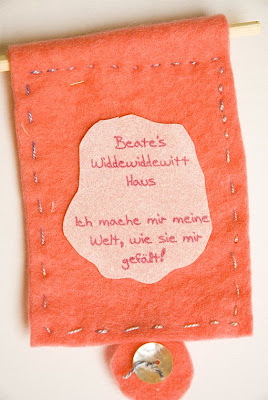 Beate's
Widdewiddewitt
Haus
Ich mache mir meine
Welt, wie sie mir
gefällt!